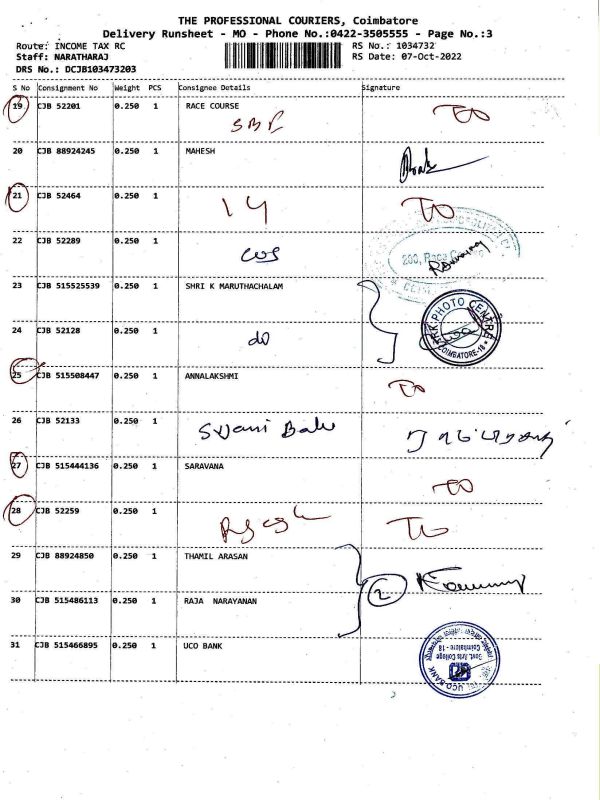 THE PROFESSIONAL COURIERS, Coimbatore
Delivery Runsheet - MO - Phone No.:0422-3505555 - Page No.:3
Route: INCOME TAX RC RS No.: 1034732
Staff: NARATHARAJ RS Date: 07-Oct-2022
DRS No.: DCJB103473203
S No Consignment No Weight PCS Consignee Details Signature
19 CJB 52201 0.250 1 RACE COURSE TO
20 CJB 88924245 0.250 1 MAHESH
21 CJB 52464 0.250 1 14 TO
22 CJB 52289 0.250 1
23 CJB 515525539 0.250 1 SHRI K MARUTHACHALAM
PHOTO CENTRE
24 CJB 52128 0.250 1 do
COIMBATORE-18
25 CJB 515508447 0.250 1 ANNALAKSHMI TO
26 CJB 52133 0.250 1
27 CJB 515444136 0.250 1 SARAVANA TO
28 CJB 52259 0.250 1 TO
29 CJB 88924850 0.250 1 THAMIL ARASAN
2
30 CJB 515486113 0.250 1 RAJA NARAYANAN
31 CJB 515466895 0.250 1 UCO BANK
UCO BANK
Govt. Arts College
Coimbatore - 18